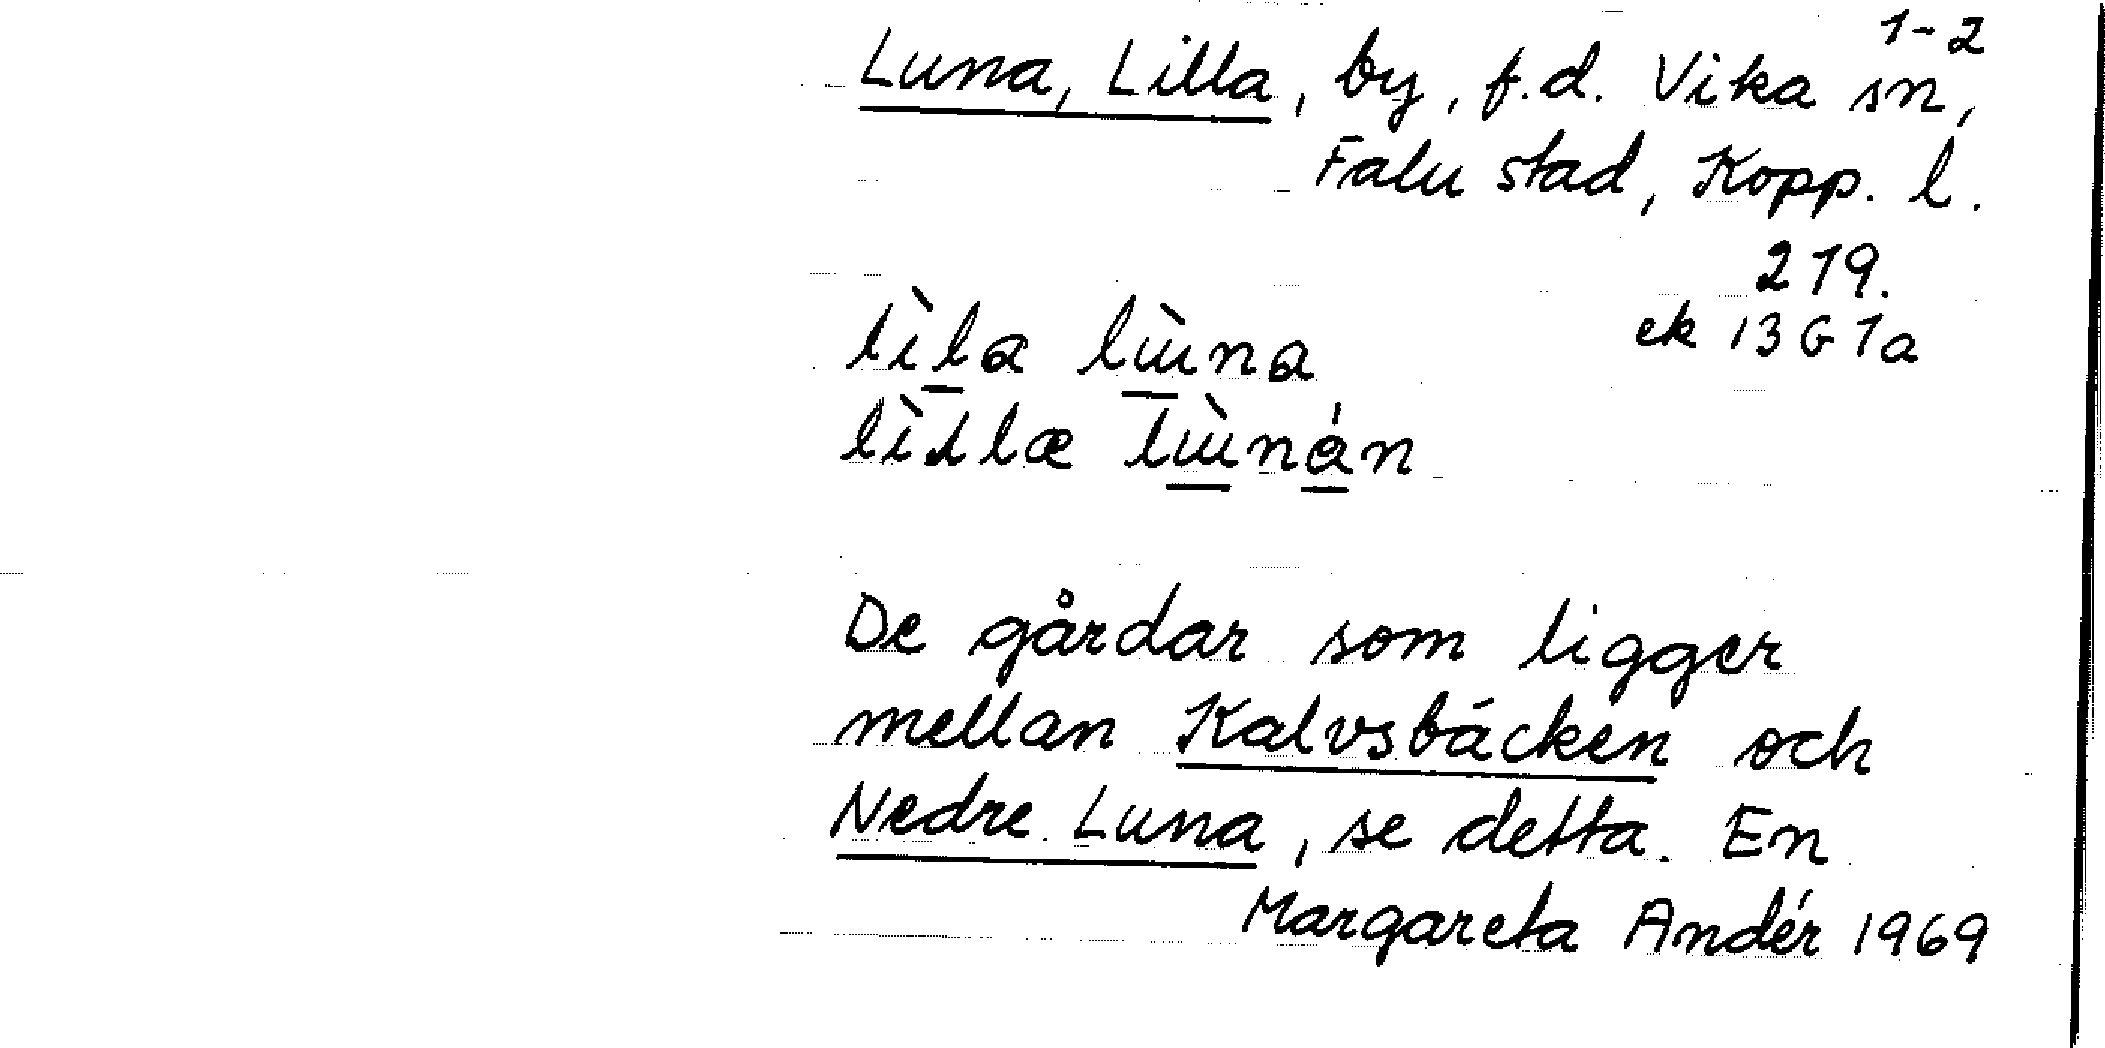 1-2
Luna, Lilla, by, f.d. Vika sn,
Falu stad, Kopp. l.
219.
ek 13 G 1a
lìla lɯ̀na
lìɹlæ lɯ̀nán
De gårdar som ligger
mellan Kalvsbäcken och
Nedre Luna, se detta. En
Margareta Andér 1969